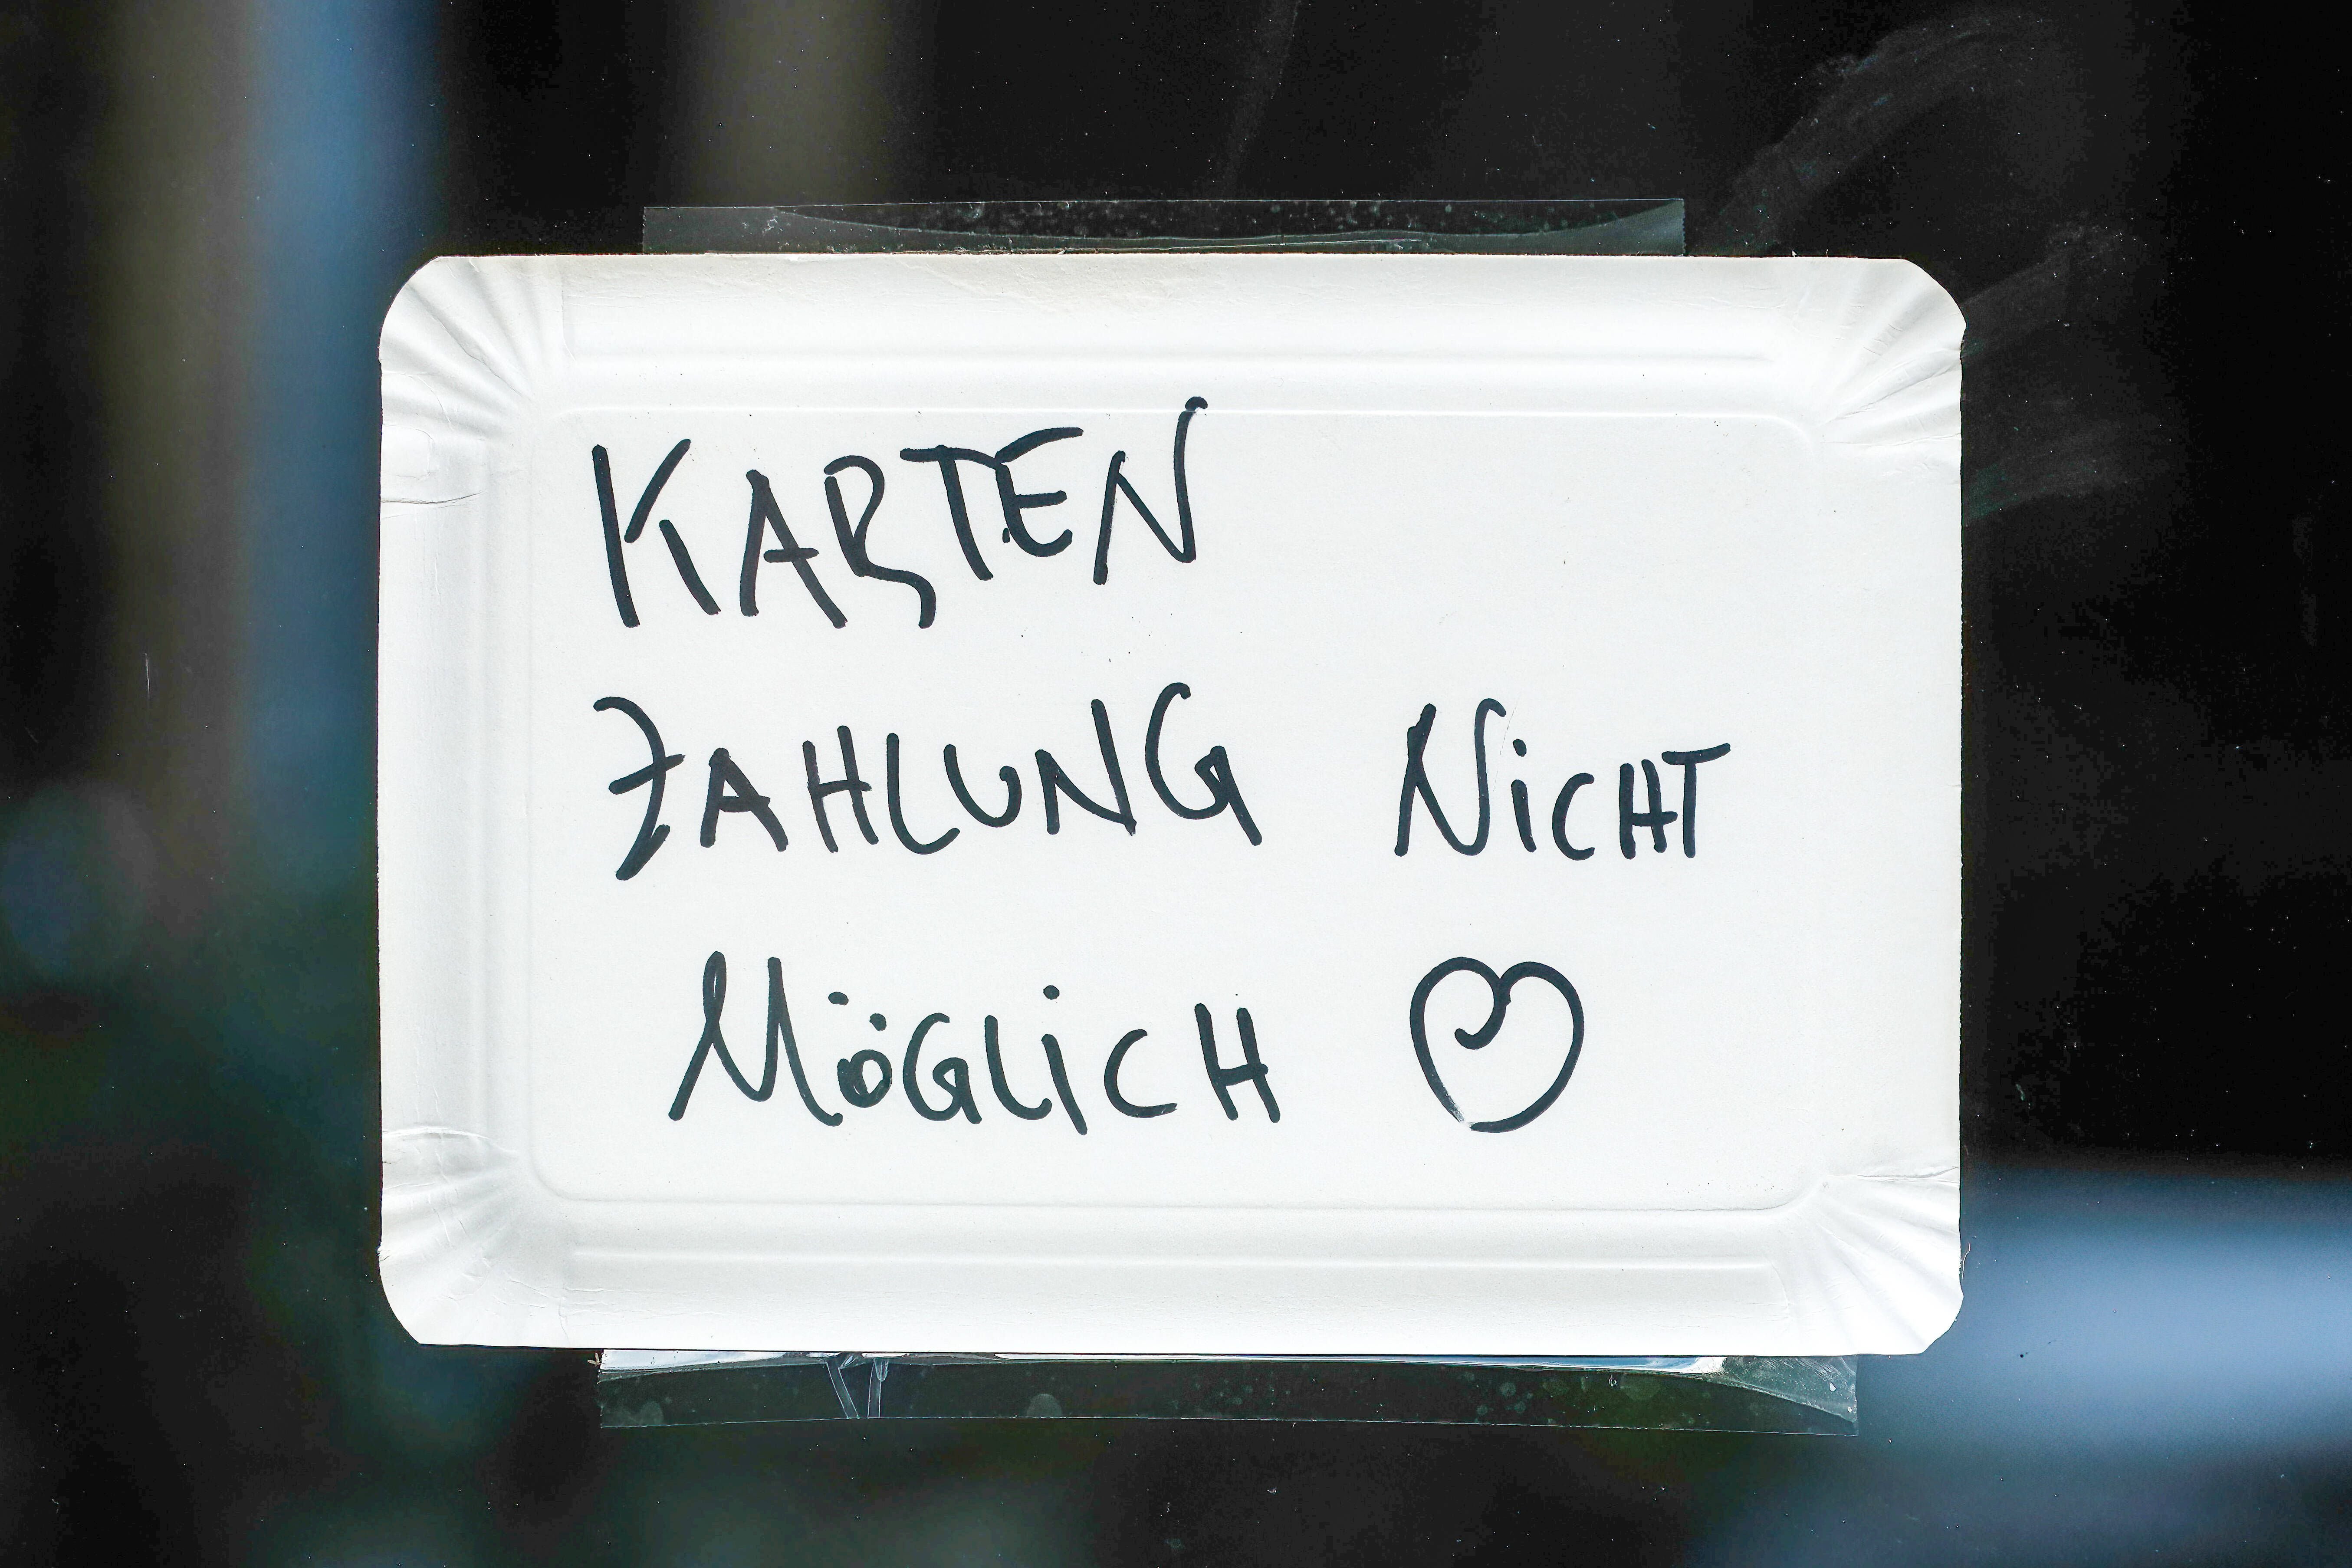 KARTEN
ZAHLUNG NiCHT
MöGLiCH ♡